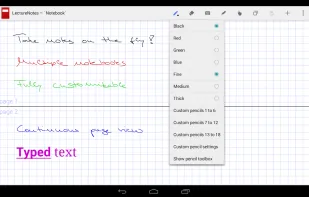 LectureNotes – Notebook
Take notes on the fly!
Multiple notebooks
Fully customizable
page 1
page 2
Continuous page view
Typed text
Black
Red
Green
Blue
Fine
Medium
Thick
Custom pencils 1 to 6
Custom pencils 7 to 12
Custom pencils 13 to 18
Custom pencil settings
Show pencil toolbox